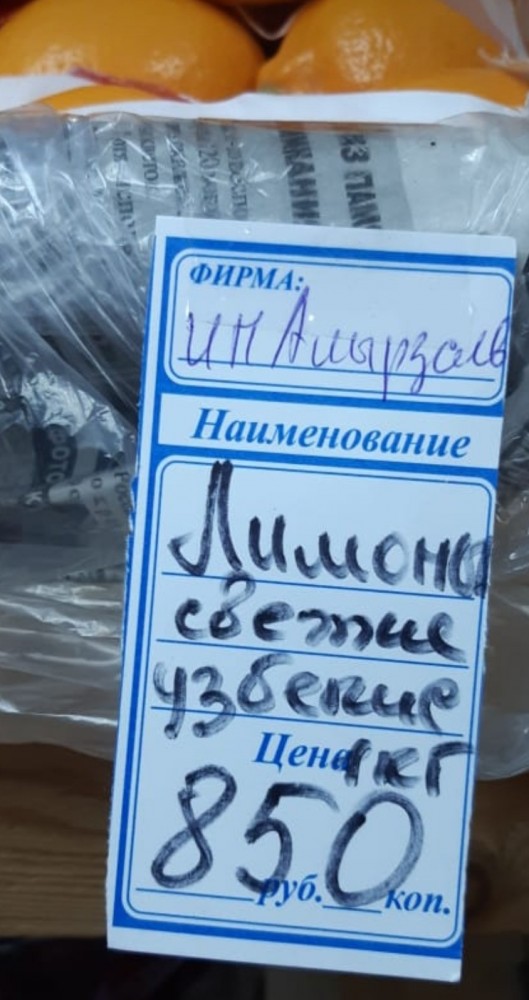 ИЗ ПАМ
ФИРМА:
ИП Амырзаль
Наименование
Лимоны
свежие
узбекие
Цена 1кг
850
руб. коп.